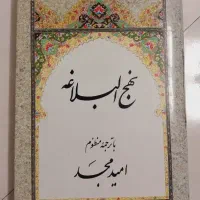 نهج البلاغه
با ترجمه منظوم
امید مجد